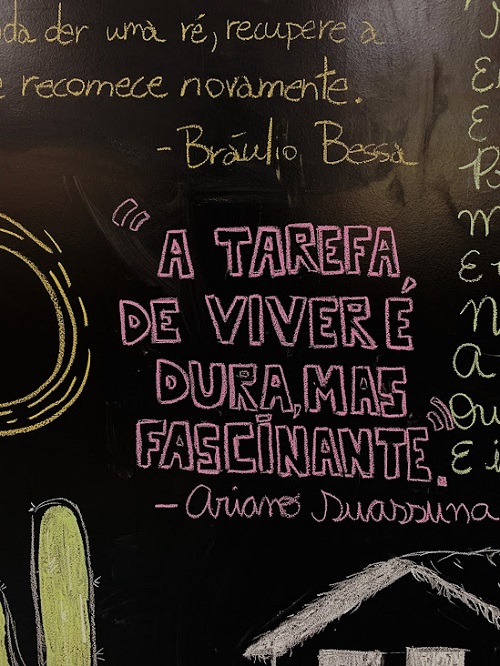 der uma ré, recupere a
e recomece novamente.
- Bráulio Bessa
"A TAREFA
DE VIVER É
DURA, MAS
FASCINANTE".
- Ariano Suassuna
E
E